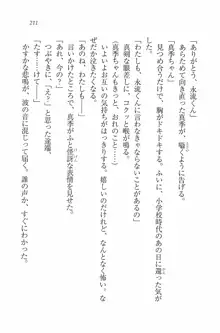 211
「ありがとう、永流くん」
「真季ちゃん」
あっちを向き直す真季に、囁くように告げる。
見つめ合うだけで、胸がドキドキする。ふいに、小学校時代のあの日に還った気が
した。
真剣な眼差しに、コクッと喉が鳴る。
(真季ちゃんもきっと、おれのこと)
「あのね、わたし、永流くんに言わなきゃならないことがあるの」
いよいよお互いの気持ちがはっきりする。嬉しいのだけれど、なんだか怖い。な
ぜだか泣きたくなる。
「あのね、わたしね……」
言いかけたところで、真季がふと怪訝な表情を見せた。
「あれ、今の……」
「え?」と思った途端、
「たす……けて――」
かすかな悲鳴が、波の音に混じって届く。誰の声か、当てるまでもなかった。